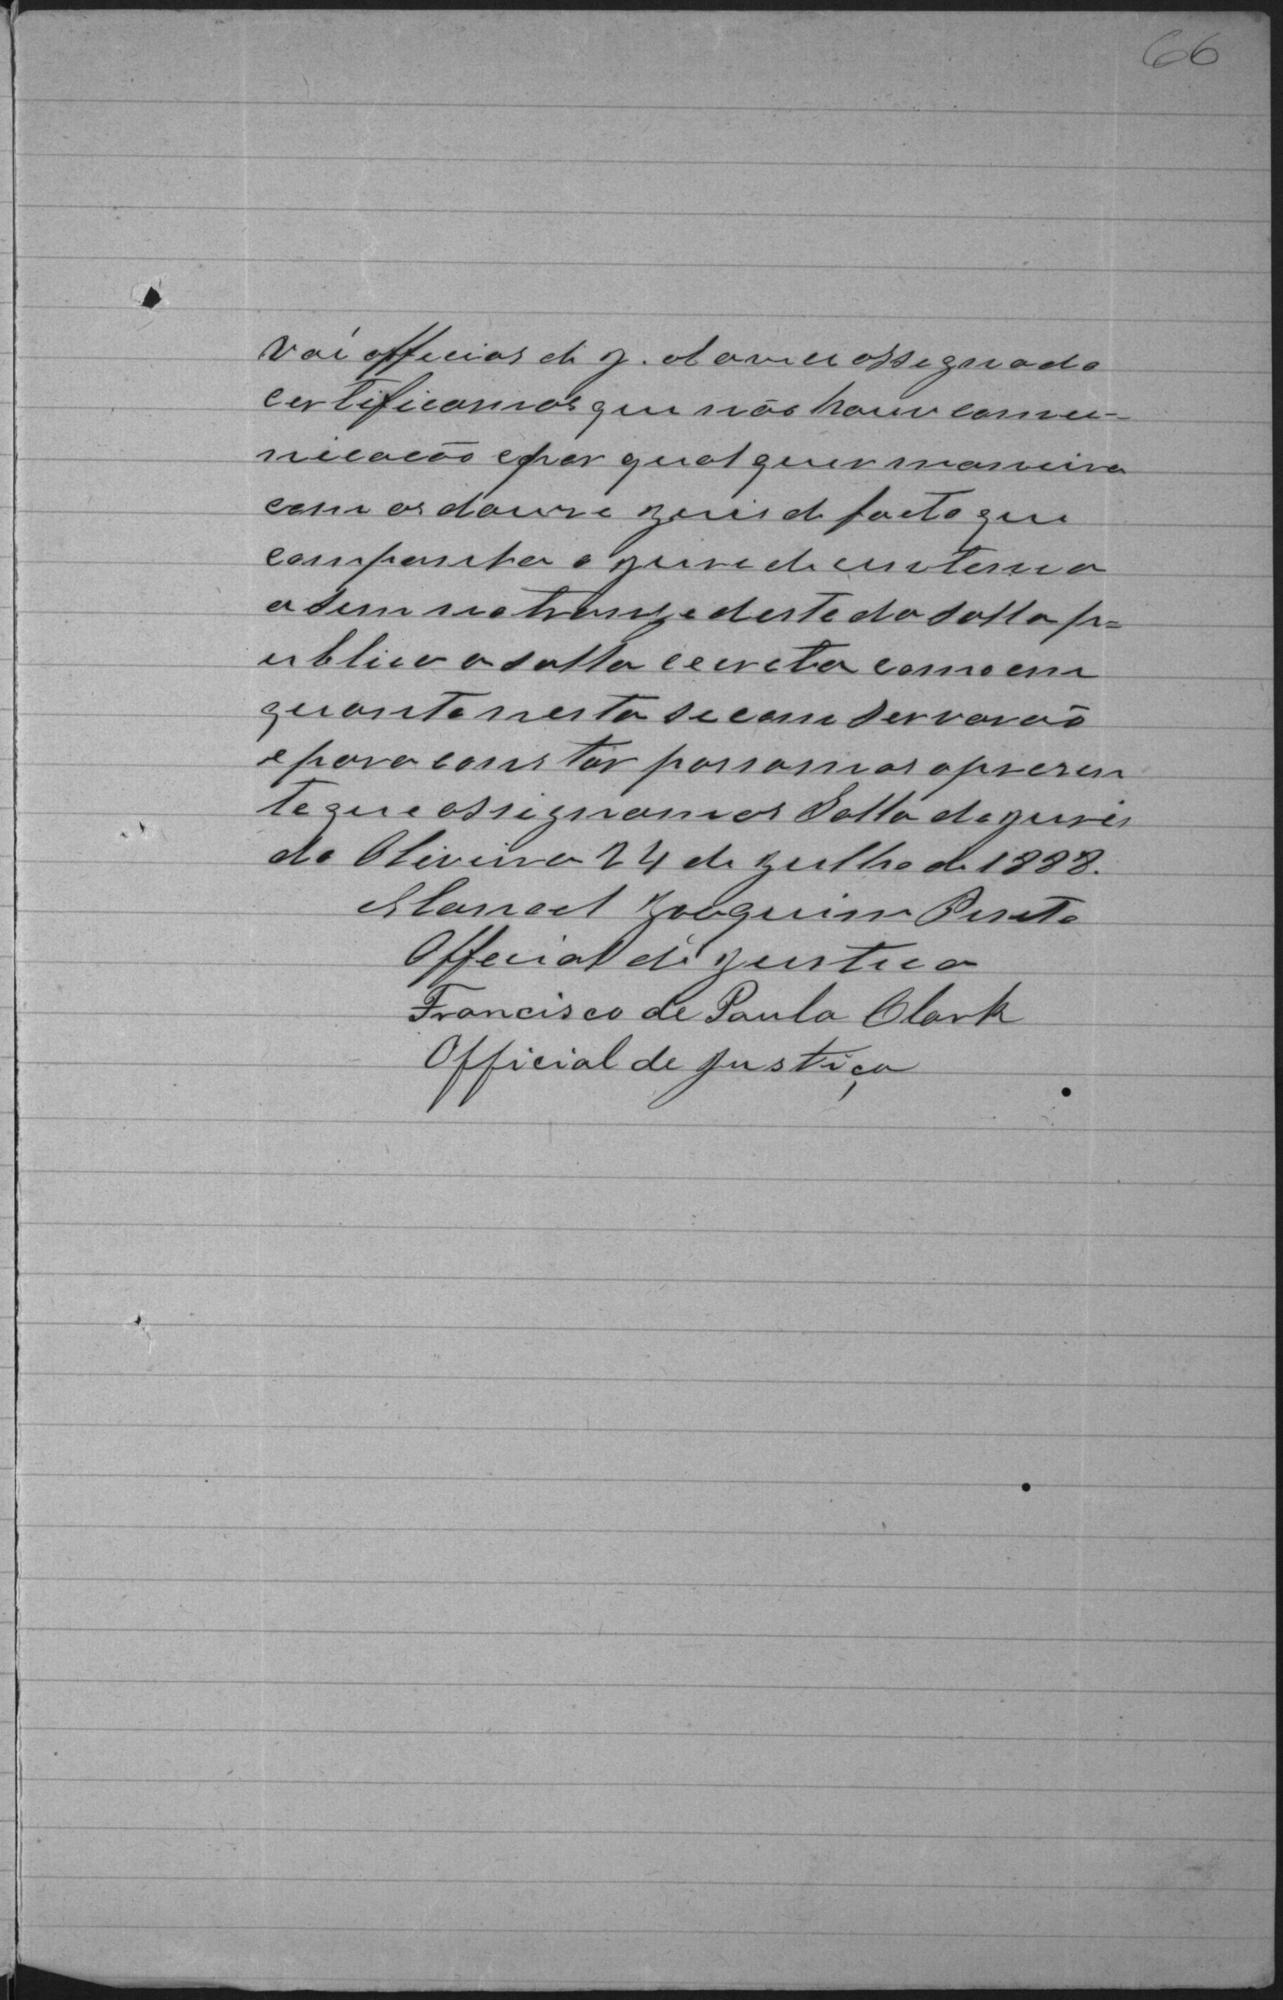 66
Nós officias de J. abaixo assignado
certificamos que não houve comu-
nicacão e por qual quer maneira
com os douse Juis de facto que
compunha o Jure de
asim no tranze deste da Salla p=
ublica a Salla cecreta como em
quanto nesta se conservarão
e para constar passamos apresen
te que assignamos Salla do Juri
de Oliveira 24 de Julho de 1888.
Manoel Joaquim Pinto
Official de Justica
Francisco de Paula Clark
Official de Justiça